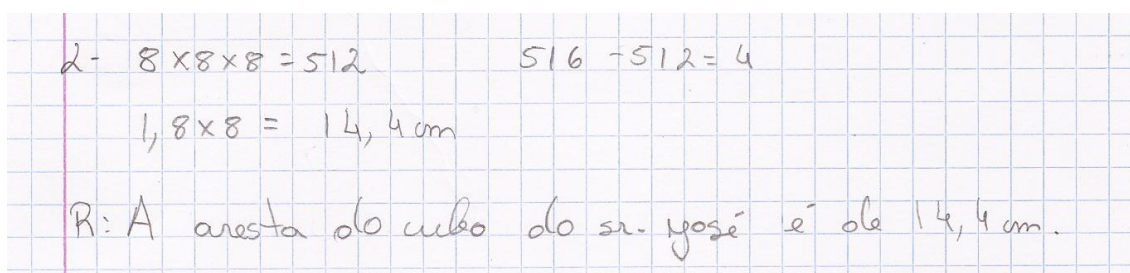 2- 8×8×8 = 512 516 - 512 = 4
1,8×8 = 14,4 cm
R: A aresta do cubo do sr. José é de 14,4 cm.